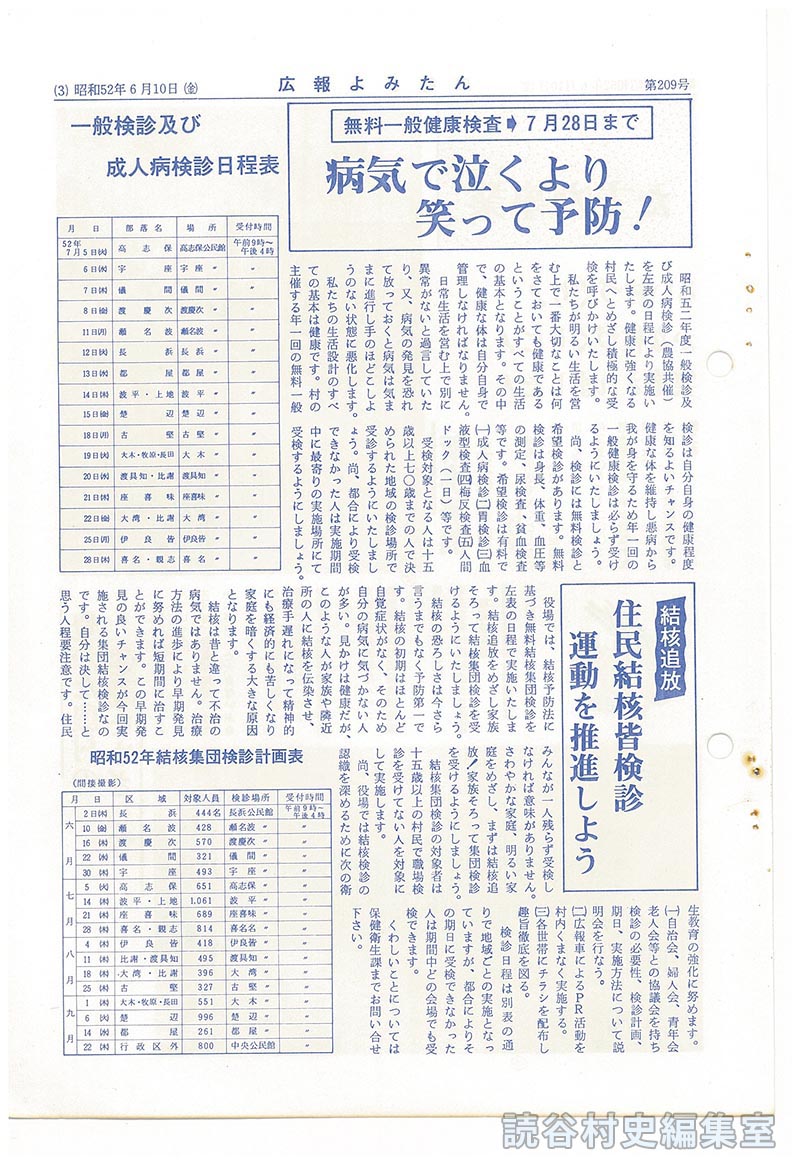 (3) 昭和52年6月10日(金)
広報よみたん
第209号
無料一般健康検査➡7月28日まで
病気で泣くより
笑って予防!
一般検診及び
成人病検診日程表
月日 部落名 場所 受付時間
52年7月5日(火) 高志保 高志保公民館 午前9時～午後4時
6日(水) 宇座 宇座〃 〃
7日(木) 儀間 儀間〃 〃
8日(金) 渡慶次 渡慶次〃 〃
11日(月) 瀬名波 瀬名波〃 〃
12日(火) 長浜 長浜〃 〃
13日(水) 都屋 都屋〃 〃
14日(木) 波平・上地 波平〃 〃
15日(金) 楚辺 楚辺〃 〃
18日(月) 古堅 古堅〃 〃
19日(火) 大木・牧原・長田 大木〃 〃
20日(水) 渡具知・比謝 渡具知〃 〃
21日(木) 座喜味 座喜味〃 〃
22日(金) 大湾・比謝 大湾〃 〃
25日(月) 伊良皆 伊良皆〃 〃
28日(木) 喜名・親志 喜名〃 〃
昭和五二年度一般検診及
び成人病検診(農協共催)
を左表の日程により実施い
たします。健康に強くなる
村民へとめざし積極的な受
検を呼びかけいたします。
私たちが明るい生活を営
む上で一番大切なことは何
をさておいても健康である
ということがすべての生活
の基本となります。その中
で、健康な体は自分自身で
管理しなければなりません。
日常生活を営む上で別に
異常がないと過言していた
り、又、病気の発見を恐れ
て放っておくと病気は気ま
まに進行し手のほどこしよ
うのない状態に悪化します。
私たちの生活設計のすべ
ての基本は健康です。村の
主催する年一回の無料一般
検診は自分自身の健康程度
を知るよいチャンスです。
健康な体を維持し悪病から
我が身を守るため年一回の
一般健康検診は必らず受け
るようにいたしましょう。
尚、検診には無料検診と
希望検診があります。無料
検診は身長、体重、血圧等
の測定、尿検査、貧血検査
等です。希望検診は有料で
(一)成人病検診(二)胃検診(三)血
液型検査(四)梅反検査(五)人間
ドック(一日)等です。
受検対象となる人は十五
歳以上七〇歳までの人で決
められた地域の検診場所で
受診するようにいたしまし
ょう。尚、都合により受検
できなかった人は実施期間
中に最寄りの実施場所にて
受検するようにしましょう。
結核追放
住民結核皆検診
運動を推進しよう
役場では、結核予防法に
基づき無料結核集団検診を
左表の日程で実施いたしま
す。結核追放をめざし家族
そろって結核集団検診を受
けるようにいたしましょう。
結核の恐ろしさは今さら
言うまでもなく予防第一で
す。結核の初期はほとんど
自覚症状がなく、そのため
自分の病気に気づかない人
が多い。見かけは健康だが、
このような人が家族や隣近
所の人に結核を伝染させ、
治療手遅れになって精神的
にも経済的にも苦しくなり
家庭を暗くする大きな原因
となります。
結核は昔と違って不治の
病気ではありません。治療
方法の進歩により早期発見
に努めれば短期間に治すこ
とができます。この早期発
見の良いチャンスが今回実
施される集団結核検診なの
です。自分は決して……と
思う人程要注意です。住民
みんなが一人残らず受検し
なければ意味がありません。
さわやかな家庭、明るい家
庭をめざし、まずは結核追
放!家族そろって集団検診
を受けるようにしましょう。
結核集団検診の対象者は
十五歳以上の村民で職場検
診を受けてない人を対象に
して実施します。
尚、役場では結核検診の
認識を深めるために次の衛
生教育の強化に努めます。
(一)自治会、婦人会、青年会
老人会等との協議会を持ち
検診の必要性、検診計画、
期日、実施方法について説
明会を行なう。
(二)広報車によるPR活動を
村内くまなく実施する。
(三)各世帯にチラシを配布し
趣旨徹底を図る。
検診日程は別表の通
りで地域ごとの実施となっ
ていますが、都合によりそ
の期日に受検できなかった
人は期間中どの会場でも受
検できます。
くわしいことについては
保健衛生課までお問い合せ
下さい。
昭和52年結核集団検診計画表
(間接撮影)
月日 区域 対象人員 検診場所 受付時間
六月 2日(木) 長浜 444名 長浜公民館 午前9時～午後4時
10(金) 瀬名波 428 瀬名波〃 〃
16(木) 渡慶次 570 渡慶次〃 〃
22(水) 儀間 321 儀間〃 〃
30(木) 宇座 493 宇座〃 〃
七月 5(火) 高志保 651 高志保〃 〃
14(木) 波平・上地 1.061 波平〃 〃
21(木) 座喜味 689 座喜味〃 〃
28(木) 喜名・親志 814 喜名〃 〃
八月 4(木) 伊良皆 418 伊良皆〃 〃
11(木) 比謝・渡具知 495 渡具知〃 〃
18(木) 大湾・比謝 396 大湾〃 〃
25(木) 古堅 327 古堅〃 〃
九月 1(木) 大木・牧原・長田 551 大木〃 〃
6(火) 楚辺 996 楚辺〃 〃
14(水) 都屋 261 都屋〃 〃
22(木) 行政区外 800 中央公民館 〃
読谷村史編集室